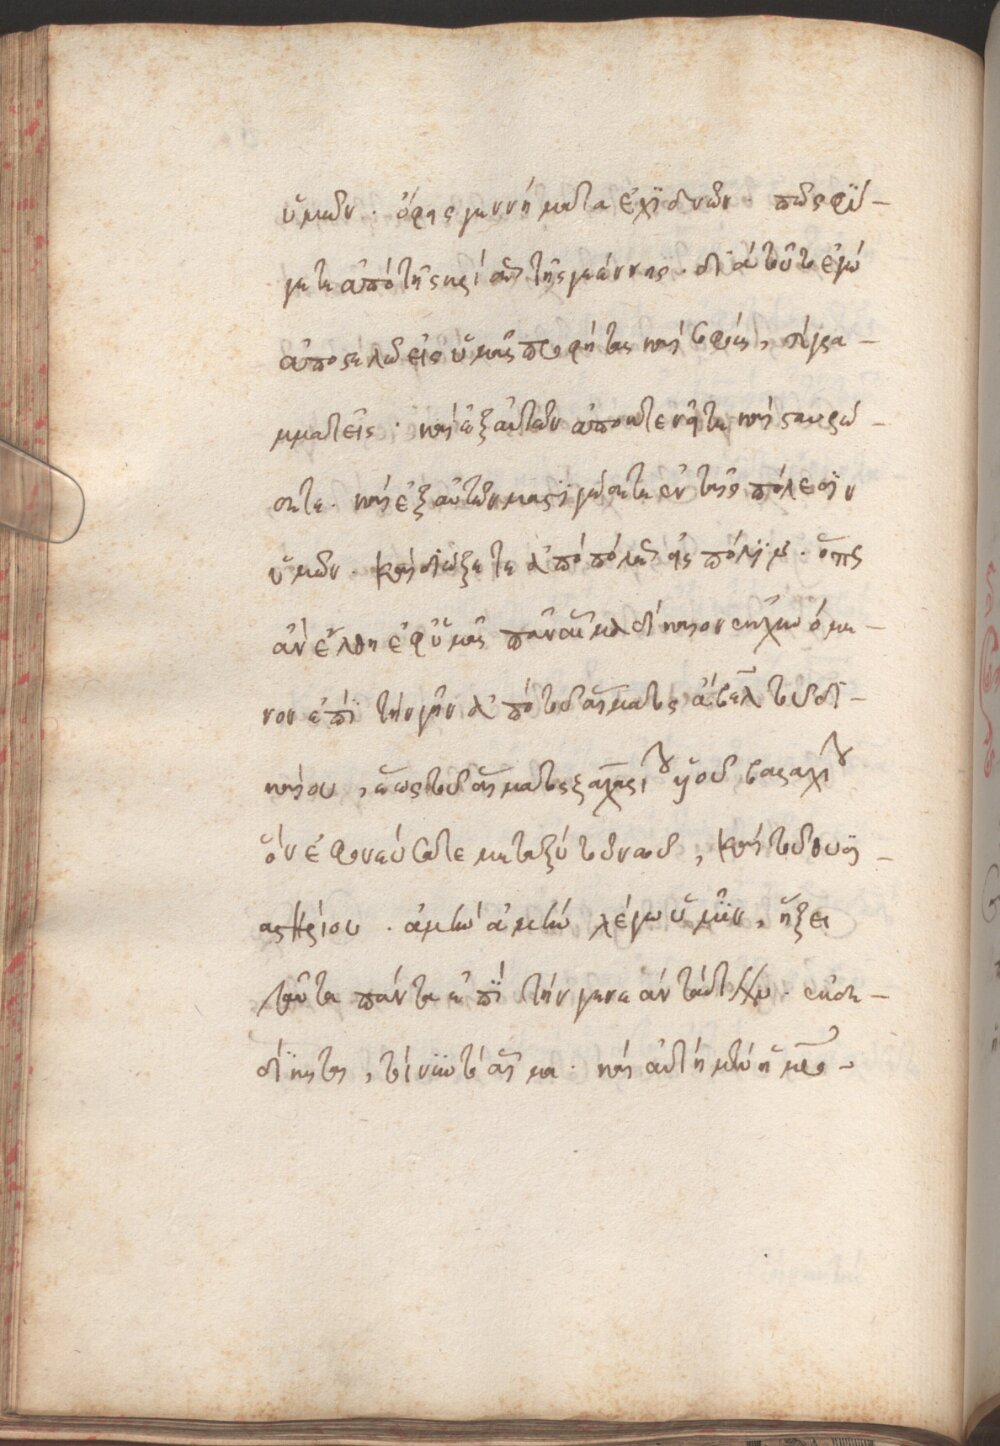 ὑμῶν · ὄφης γεννήματα ἐχϊδνῶν · πῶς φϋ-
γητε ἀπό τῆς κρίσεως τῆς γεέννης · διἀτοῦτο ἐγώ
ἀποστέλω εἰς ὑμᾶς προφήτας καί σοφούς, καί γρα-
μματεῖς · καί ἐξαὐτῶν ἀποκτενῆτε καί σταυρώ-
σητε · καί ἐξ αὐτῶν μαστϊγώσητε ἐν ταῖς πόλεσϊν
ὑμῶν · καί διώξητε ἀπό πόλεως εἰς πόλϊν · ὅπως
ἄν ἔλθη ἐφ ὑμᾶς πᾶν αἷμα δίκαιον ἐκχυνόμε-
νον ἐπϊ τήν γῆν ἀπό τοῦ αἵματος ἄβελ τοῦ δϊ-
καίου, ἕως τοῦ αἵματος ζαχαρίου υἱοῦ βαραχίου
ὅν ἐφονεύσατε μεταξύ τοῦ ναοῦ, καί τοῦ θυσϊ-
αστηρίου · ἀμήν ἀμήν λέγω ὑμῖν, ἥξει
ταῦτα πάντα ἐπϊ τήν γενεάν ταύτην · ἐκζη-